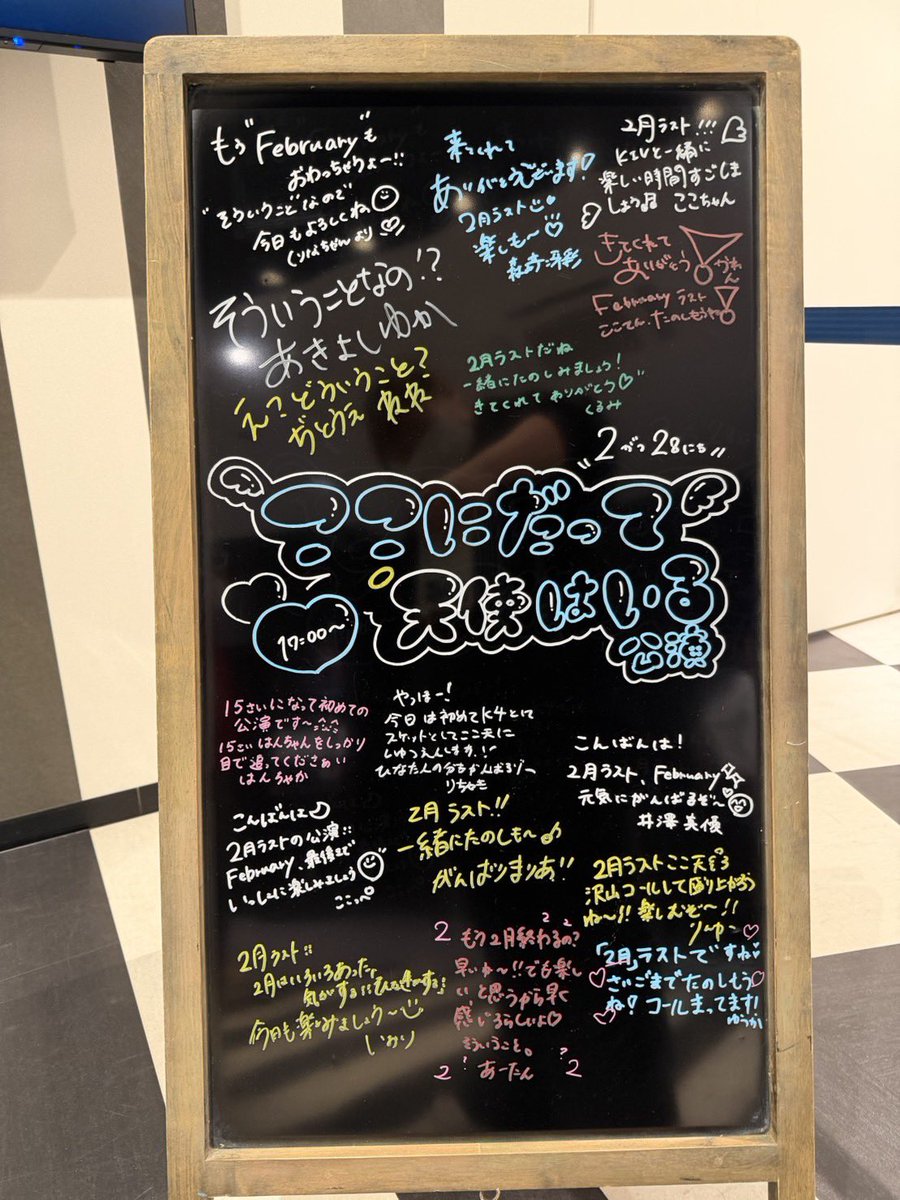 もう"February"も
おわっちゃうよー!!
"そういうこと"なので
今日もよろしくね
くりなちゃんより
来てくれて
ありがとうございます!
2月ラスト
楽しも〜♡
2月ラスト!!!
KIVと一緒に
楽しい時間すごしま
しょう ここちゃん
きてくれて
ありがとう
かれん
February ラスト
ここてん、たのしもうね
そういうことなの!?
あきよしゆか
え?どういうこと?
2月ラストだね
一緒にたのしみましょう!
きてくれてありがとう♡
くるみ
"2がつ28にち"
ここにだって
天使はいる
公演
17:00〜
15さいになって初めての
公演です〜
15さいはんちゃんをしっかり
目で追ってくださぁい
はんちゃか
やっほー!
今日は初めてK4とにて
スケットとしてここ天に
しゅつえんします!
ひなたんの分もがんばるゾー
りちゃき
こんばんは!
2月ラスト、February
元気にがんばるぞ〜
井澤美優
こんばんは♪
2月ラストの公演!!
February、最後まで
いっしょに楽しみましょう
ここっぺ
2月ラスト!!
一緒にたのしも〜♪
がんばりまりあ!!
2月ラストここ天!
沢山コールして盛り上がろう
ね〜!! 楽しむぞ〜!!
りゆ〜
2月ラスト!!
2月はいろいろあった
気がする
今日も楽しみましょう〜
いおり
2 2 2
もう2月終わるの?
早いね〜!!でも楽し
い、と思うから早く
感じるらしいよ♡
そういうこと。
2 ? あーたん ? 2
「2月」ラストですね♡
さいごまでたのしもう
ね! コールまってます!
ゆうか